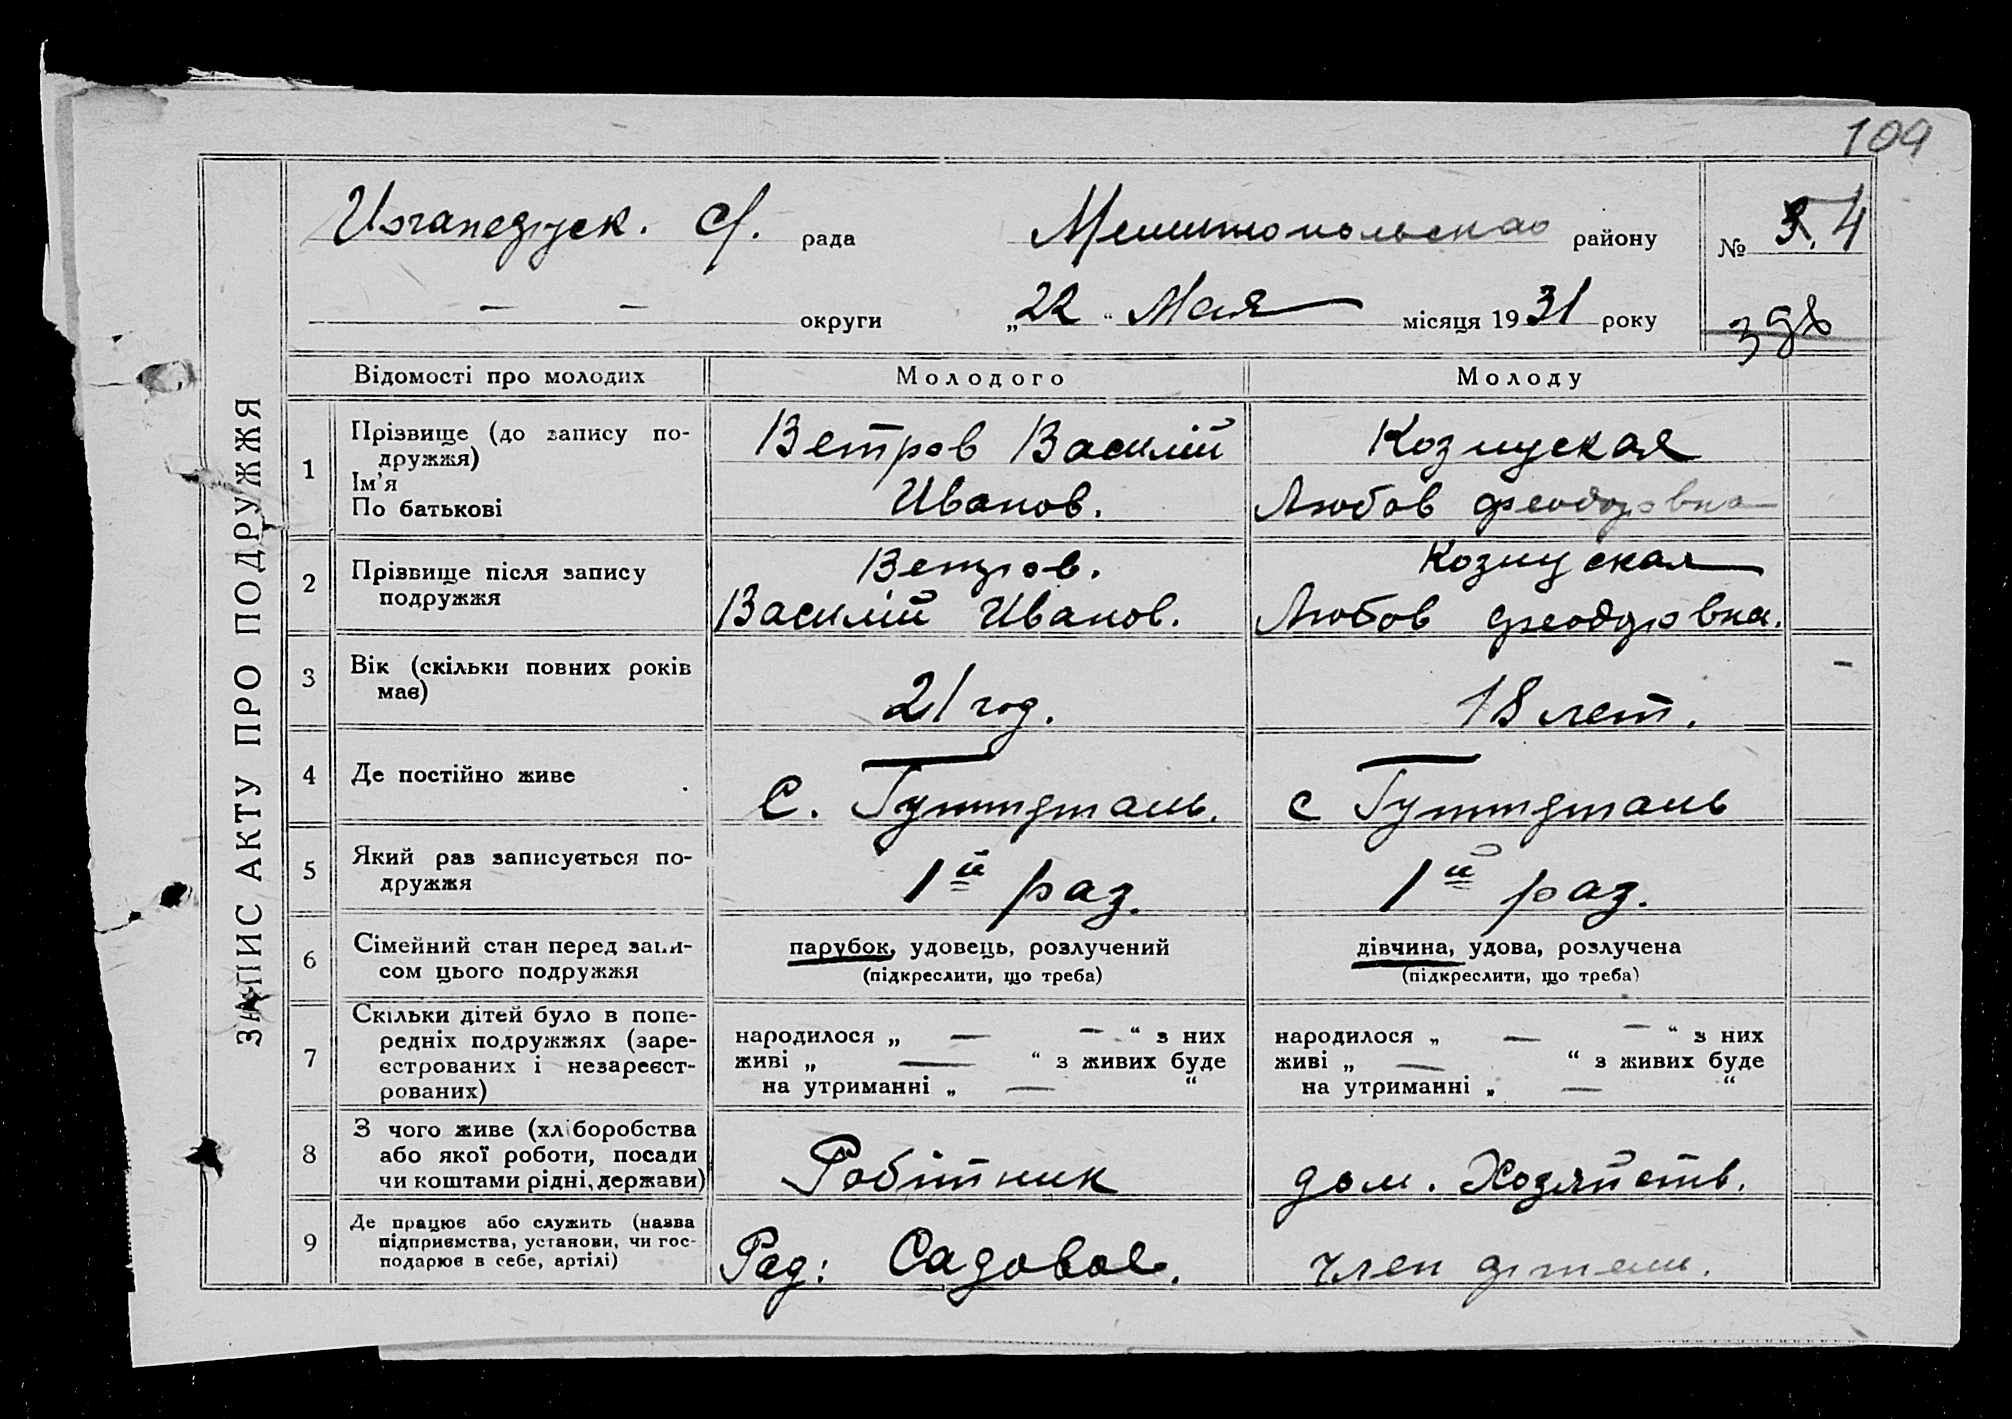 109
С/. рада Мелитопольскао району № 3. 4
— — округи „22“ Мая місяця 1931 року
398
ЗАПИС АКТУ ПРО ПОДРУЖЖЯ
Відомості про молодих Молодого Молоду
1 Прізвище (до запису по-
дружжя)
Ім'я
По батькові
Ветров Василий
Иванов.
Любов феодоровна
2 Прізвище після запису
подружжя
Ветров.
Василий Иванов.
Любов феодоровна.
3 Вік (скільки повних років
має)
21 год. 18 лет.
4 Де постійно живе
С. Гуттдталь. с Гуттдталь
5 Який раз записується по-
дружжя
1й раз. 1й раз.
6 Сімейний стан перед запи-
сом цього подружжя
парубок, удовець, розлучений
(підкреслити, що треба)
дівчина, удова, розлучена
(підкреслити, що треба)
7 Скільки дітей було в попе-
редніх подружжях (заре-
єстрованих і незареєст-
рованих)
народилося „ — — “ з них
живі „ — “ з живих буде
на утриманні „ — “
народилося „ — — “ з них
живі „ — “ з живих буде
на утриманні „ — “
8 З чого живе (хліборобства
або якої роботи, посади
чи коштами рідні, держави)
Робітник дом. Хозяйств.
9 Де працює або служить (назва
підприємства, установи, чи гос-
подарює в себе, артілі)
Рад: Садовое. член